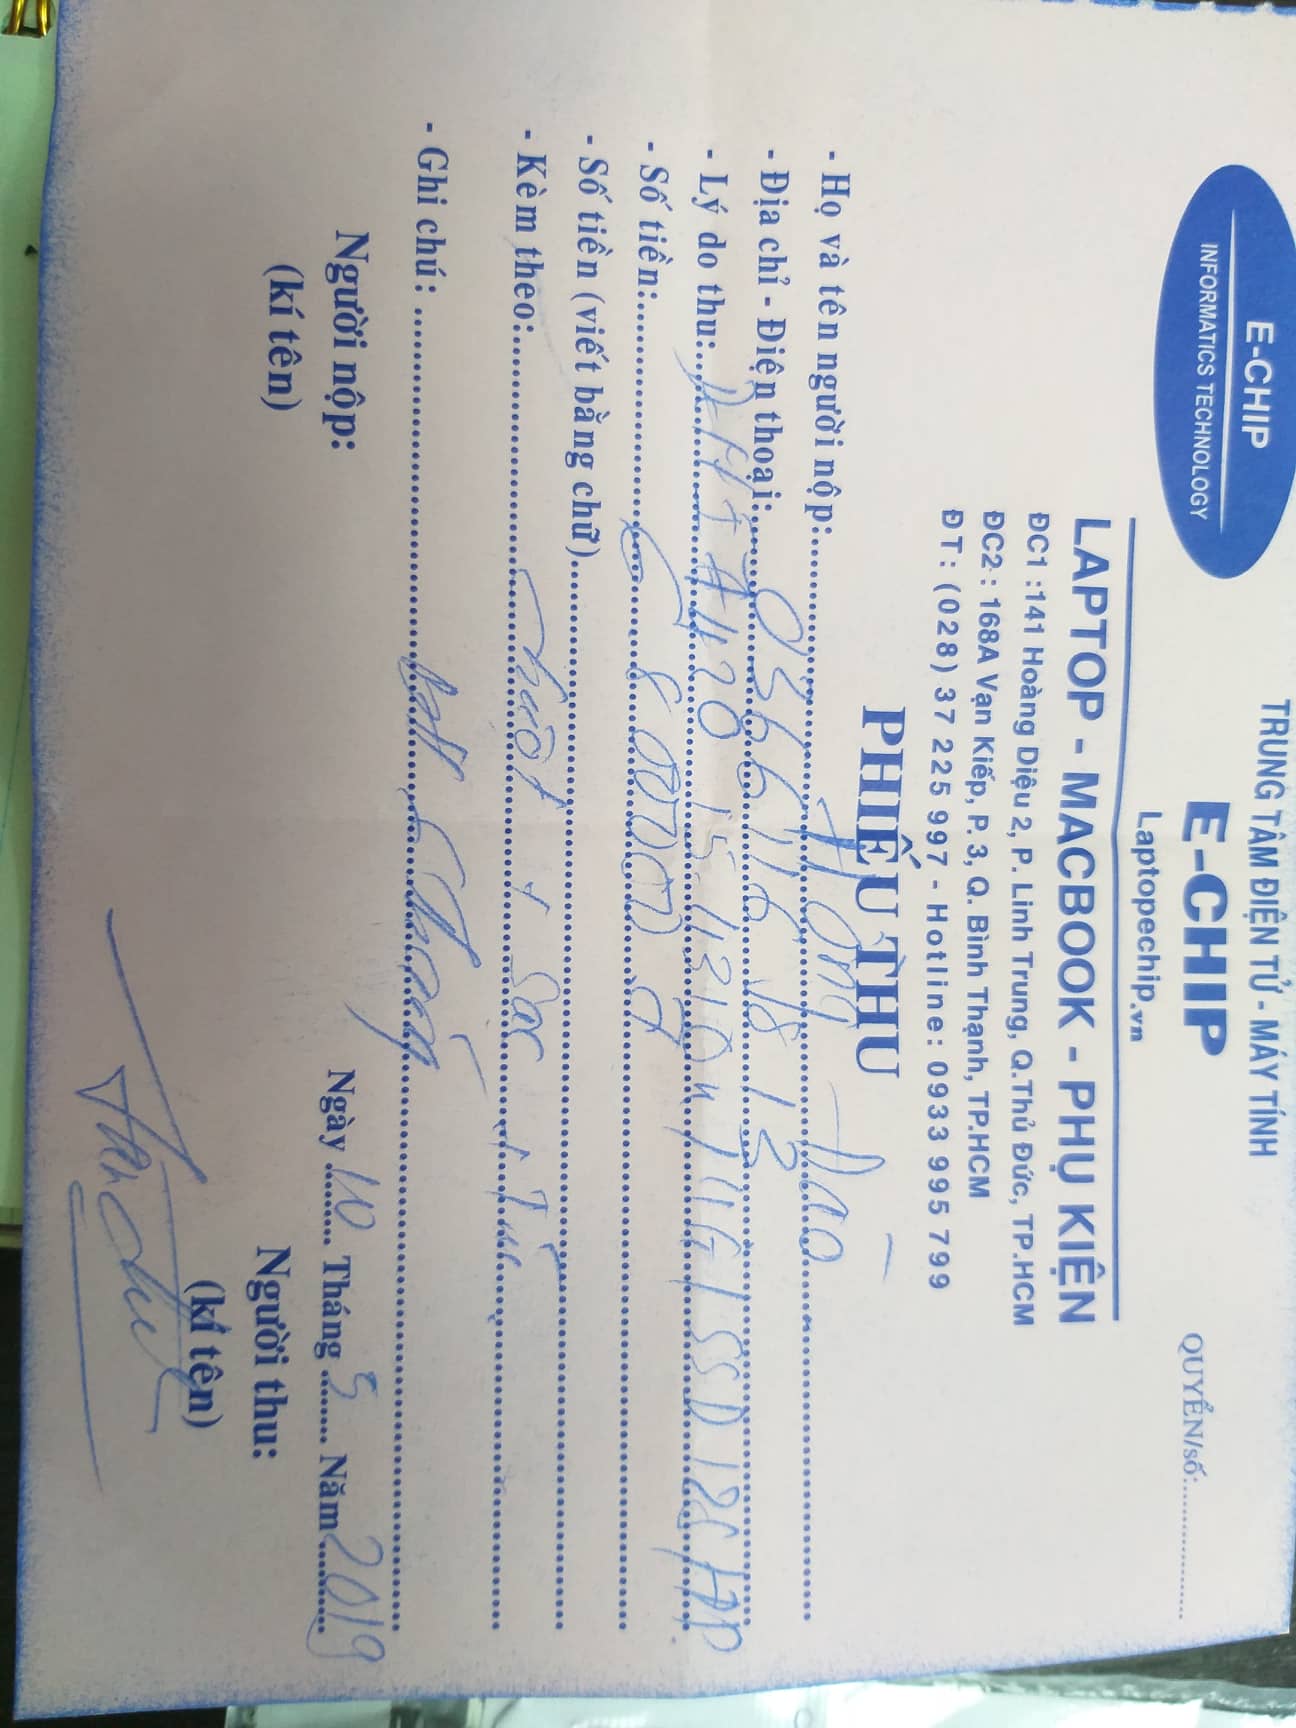 E-CHIP
INFORMATICS TECHNOLOGY
TRUNG TÂM ĐIỆN TỬ - MÁY TÍNH
E-CHIP
Laptopechip.vn
QUYỂN/số:
LAPTOP - MACBOOK - PHỤ KIỆN
ĐC1 :141 Hoàng Diệu 2, P. Linh Trung, Q.Thủ Đức, TP.HCM
ĐC2 : 168A Vạn Kiếp, P. 3, Q. Bình Thạnh, TP.HCM
ĐT: (028) 37 225 997 - Hotline: 0933 995 799
PHIẾU THU
- Họ và tên người nộp: Hồng Đào
- Địa chỉ - Điện thoại: 0366116 18 13
- Lý do thu: 7420 i5-4310u/4G/SSD128/
- Số tiền: 6.800000 đ
- Số tiền (viết bằng chữ)
- Kèm theo: chuột + Sạc + Túi
- Ghi chú: BH 6 Tháng
Ngày 10 Tháng 5 Năm 2019
Người nộp:
(kí tên)
Người thu:
(kí tên)